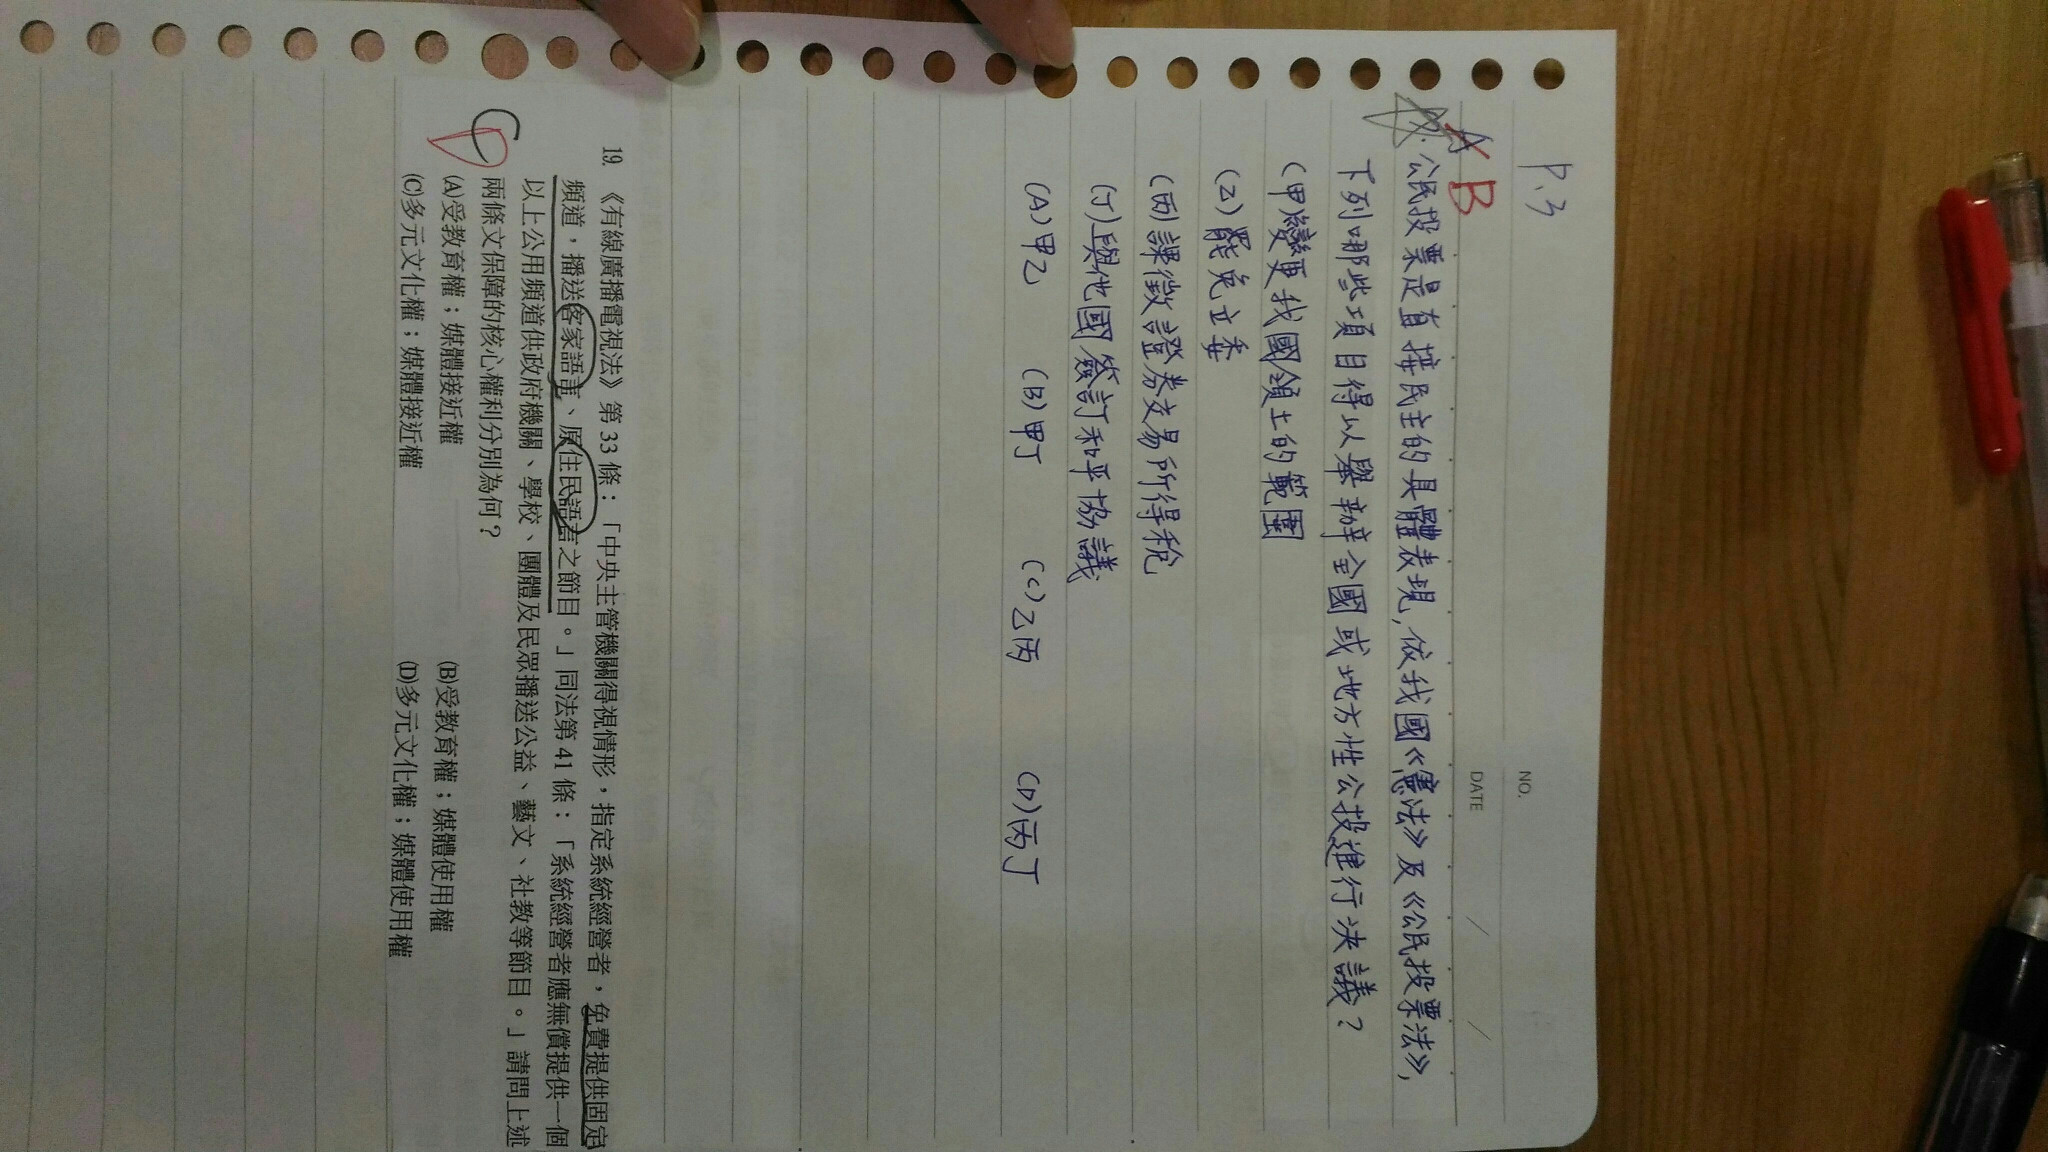 P.3
NO.
DATE / /
A B
公民投票是直接民主的具體表現，依我國《憲法》及《公民投票法》，
下列哪些項目得以舉辦全國或地方性公投進行決議？
(甲)變更我國領土的範圍
(乙)罷免立委
(丙)課徵證券交易所得稅
(丁)與他國簽訂和平協議
(A)甲乙 (B)甲丁 (C)乙丙 (D)丙丁
19. 《有線廣播電視法》第 33 條：「中央主管機關得視情形，指定系統經營者，免費提供固定
頻道，播送客家語言、原住民語言之節目。」同法第 41 條：「系統經營者應無償提供一個
以上公用頻道供政府機關、學校、團體及民眾播送公益、藝文、社教等節目。」請問上述
兩條文保障的核心權利分別為何？
C
(A)受教育權；媒體接近權 (B)受教育權；媒體使用權
(C)多元文化權；媒體接近權 (D)多元文化權；媒體使用權